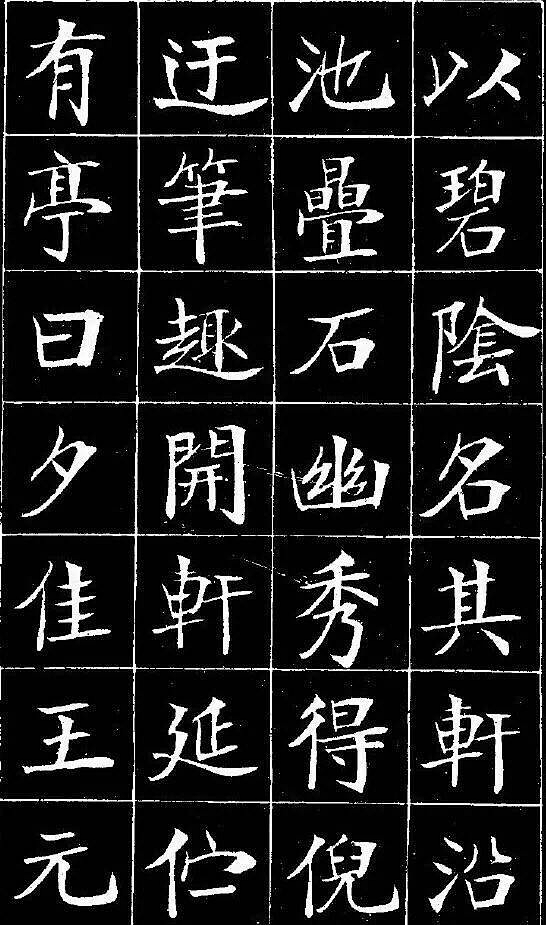 以碧陰名其軒沿
池疊石幽秀得倪
迂筆趣開軒延佇
有亭曰夕佳王元